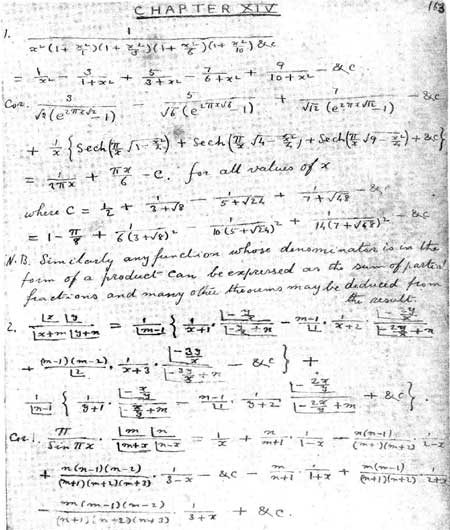 CHAPTER XIV
153
1. 1 / x²(1 + x²/1)(1 + x²/3)(1 + x²/6)(1 + x²/10) &c
= 1/x² - 3/(1+x²) + 5/(3+x²) - 7/(6+x²) + 9/(10+x²) - &c.
Cor. 3/(√2(e^{2πx√2} - 1)) - 5/(√6(e^{2πx√6} - 1)) + 7/(√12(e^{2πx√12} - 1)) - &c
+ 1/x {Sech(π/x √1-x²/2) + Sech(π/x √4-x²/2) + Sech(π/x √9-x²/2) + &c}
= 1/2πx + πx/6 - C. for all values of x
where C = 1/2 + 1/(3+√8) - 1/(5+√24) + 1/(7+√48) - &c.
= 1 - π/8 + 1/(6(3+√8)²) - 1/(10(5+√24)²) + 1/(14(7+√48)²) - &c
N.B. Similarly any function whose denominator is in the
form of a product can be expressed as the sum of partial
fractions and many other theorems may be deduced from
the result.
2. |x |y / |x+m |y+n = 1/|m-1 { 1/(x+1) · |-y/x / |-y/x + n - (m-1)/|1 · 1/(x+2) · |-2y/x / |-2y/x + n
+ (m-1)(m-2)/|2 · 1/(x+3) · |-3y/x / |-3y/x + n - &c } +
1/|n-1 { 1/(y+1) · |-x/y / |-x/y + m - (n-1)/|1 · 1/(y+2) · |-2x/y / |-2x/y + m + &c }.
Cor. 1. π/Sin πx · |m |n / |m+x |n-x = 1/x + n/(m+1) · 1/(1-x) - n(n-1)/((m+1)(m+2)) · 1/(2-x)
+ n(n-1)(n-2)/((m+1)(m+2)(m+3)) · 1/(3-x) - &c - m/(n+1) · 1/(1+x) + m(m-1)/((n+1)(n+2)) · 1/(2+x)
- m(m-1)(m-2)/((n+1)(n+2)(n+3)) · 1/(3+x) + &c.